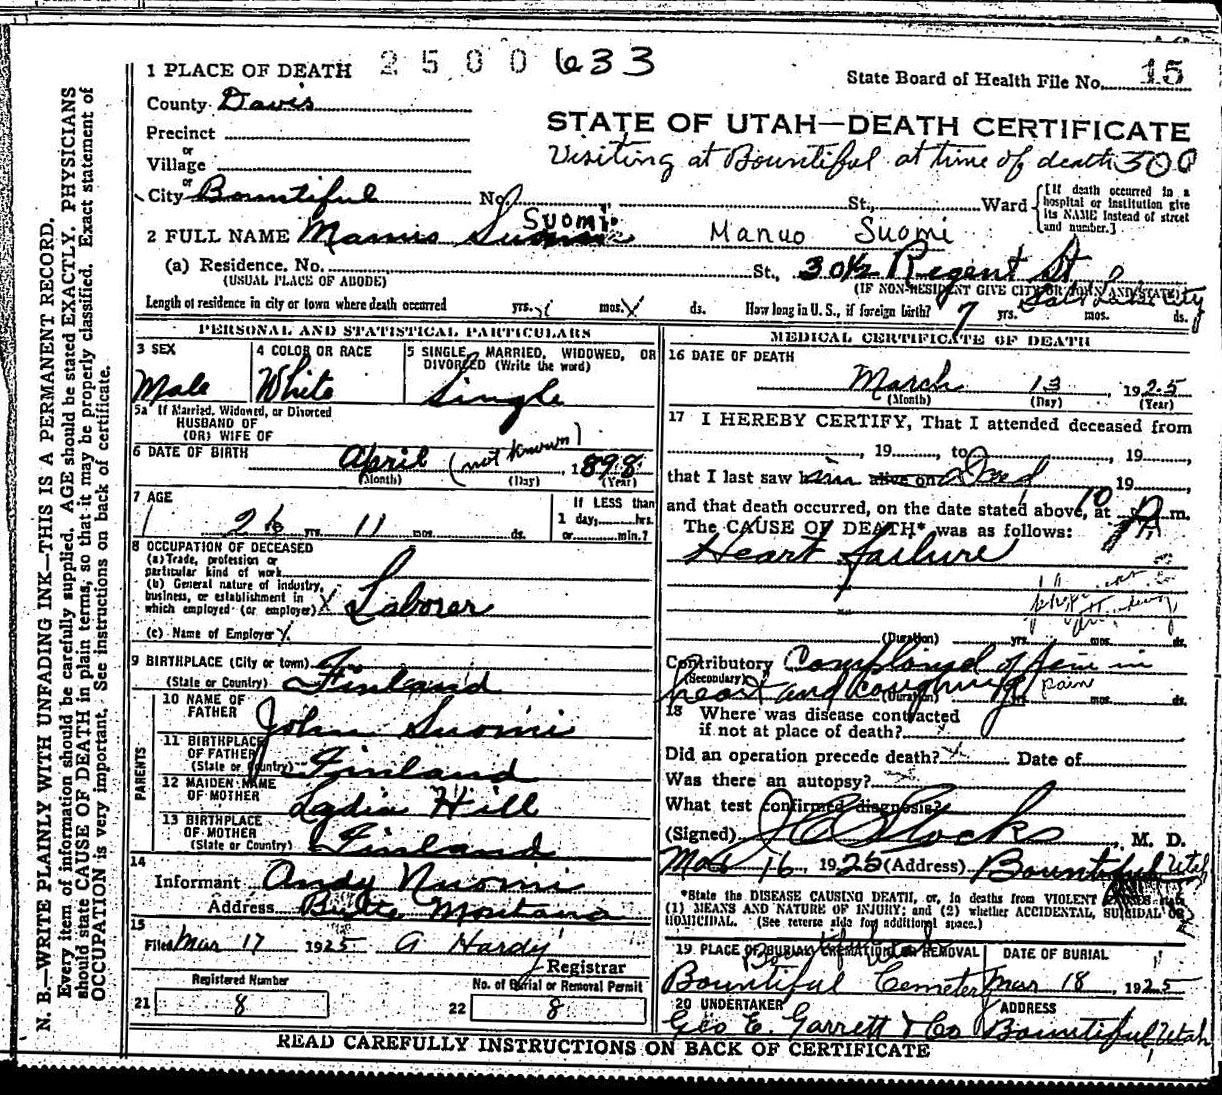 1 PLACE OF DEATH 2500633
State Board of Health File No. 15
County Davis
STATE OF UTAH—DEATH CERTIFICATE
Precinct
or
Visiting at Bountiful at time of death 300
Village
or
City Bountiful No. St., Ward
{[If death occurred in a
hospital or institution give
its NAME instead of street
and number.]
Suomi
2 FULL NAME Mannus Suomi Manuo Suomi
(a) Residence. No. St., 30½ Regent St
(USUAL PLACE OF ABODE)
(IF NON-RESIDENT GIVE CITY OR TOWN AND STATE)
Salt Lake City
Length of residence in city or town where death occurred yrs. mos. ds. How long in U. S., if foreign birth? 7 yrs. mos. ds.
PERSONAL AND STATISTICAL PARTICULARS
3 SEX
Male
4 COLOR OR RACE
White
5 SINGLE, MARRIED, WIDOWED, OR
DIVORCED (Write the word)
Single
5a If Married, Widowed, or Divorced
HUSBAND OF
(OR) WIFE OF
6 DATE OF BIRTH April (not known), 1898
(Month) (Day) (Year)
7 AGE
26 yrs. 11 mos. ds.
If LESS than
1 day, hrs.
or min.?
8 OCCUPATION OF DECEASED
(a) Trade, profession or
particular kind of work
(b) General nature of industry,
business, or establishment in
which employed (or employer) Laborer
(c) Name of Employer
9 BIRTHPLACE (City or town)
(State or Country) Finland
PARENTS
10 NAME OF
FATHER John Suomi
11 BIRTHPLACE
OF FATHER
(State or Country) Finland
12 MAIDEN NAME
OF MOTHER Lydia Hill
13 BIRTHPLACE
OF MOTHER
(State or Country) Finland
14
Informant Andy Nuomi
Address Butte Montana
15
Filed Mar 17 1925 A Hardy
Registrar
Registered Number
21 8
No. of Burial or Removal Permit
22 8
MEDICAL CERTIFICATE OF DEATH
16 DATE OF DEATH
March 13 1925
(Month) (Day) (Year)
17 I HEREBY CERTIFY, That I attended deceased from
, 19 , to , 19 ,
that I last saw him alive on Dead 19 ,
and that death occurred, on the date stated above, at 10 P m.
The CAUSE OF DEATH* was as follows:
Heart failure
(Duration) yrs. mos. ds.
Contributory Complained of pain in
(Secondary)
heart and coughing pain
(Duration) yrs. mos. ds.
18 Where was disease contracted
if not at place of death?
Did an operation precede death? Date of
Was there an autopsy?
What test confirmed diagnosis?
(Signed) J C Stocks, M. D.
Mar 16 1925 (Address) Bountiful Utah
*State the DISEASE CAUSING DEATH, or, in deaths from VIOLENT CAUSES state
(1) MEANS AND NATURE OF INJURY; and (2) whether ACCIDENTAL, SUICIDAL OR
HOMICIDAL. (See reverse side for additional space.)
19 PLACE OF BURIAL CREMATION OR REMOVAL
Bountiful Cemetery
DATE OF BURIAL
Mar 18, 1925
20 UNDERTAKER
Geo E. Garrett & Co
ADDRESS
Bountiful Utah
READ CAREFULLY INSTRUCTIONS ON BACK OF CERTIFICATE
N. B.—WRITE PLAINLY WITH UNFADING INK—THIS IS A PERMANENT RECORD.
Every item of information should be carefully supplied. AGE should be stated EXACTLY. PHYSICIANS
should state CAUSE OF DEATH in plain terms, so that it may be properly classified. Exact statement of
OCCUPATION is very important. See instructions on back of certificate.